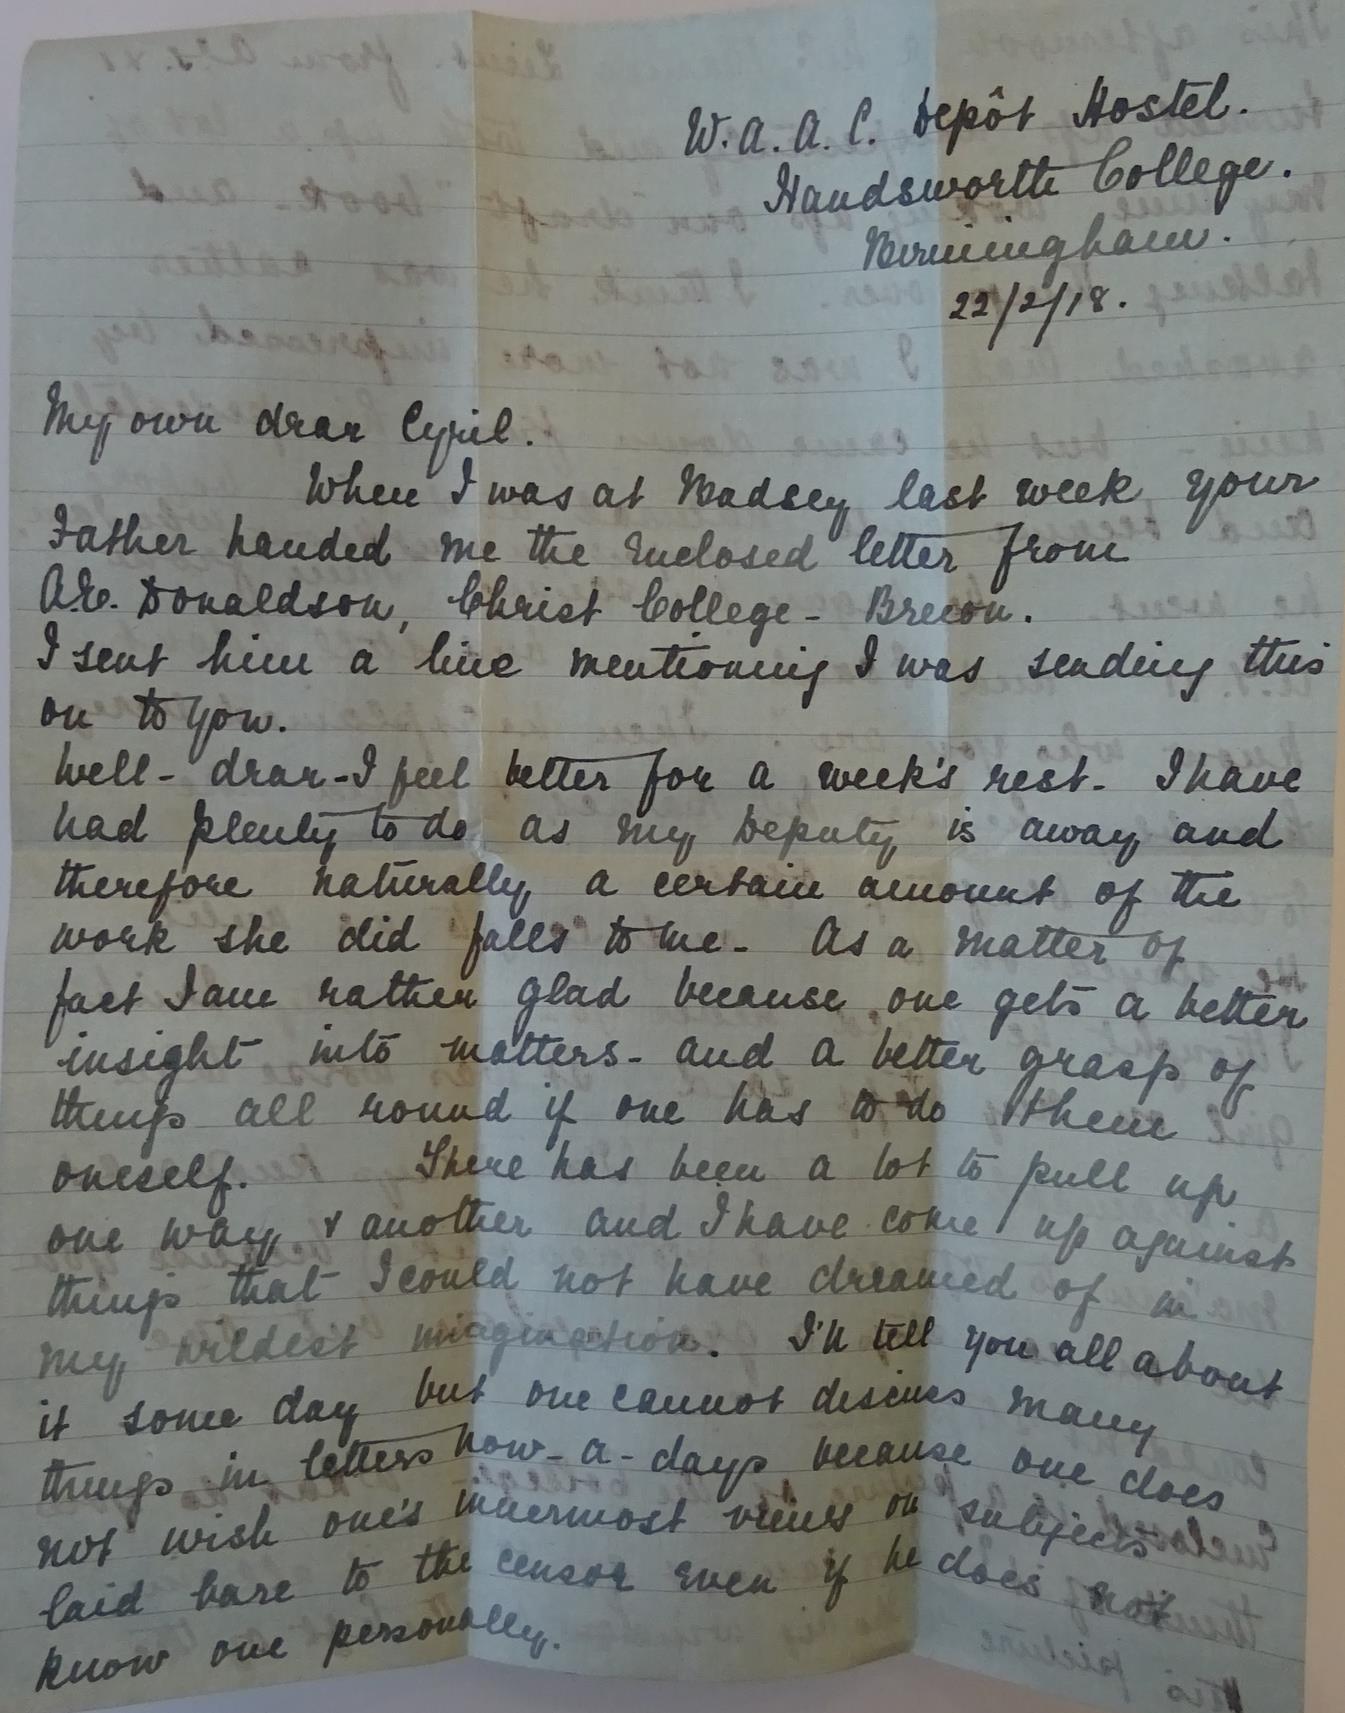 W. A. A. C. Depôt Hostel.
Handsworth College.
Birmingham.
22/2/18.
My own dear Cyril.
When I was at Badsey last week your
Father handed me the enclosed letter from
A.E. Donaldson, Christ College - Brecon.
I sent him a line mentioning I was sending this
on to you.
Well - dear - I feel better for a week's rest - I have
had plenty to do as my Deputy is away and
therefore naturally a certain amount of the
work she did falls to me - As a matter of
fact I am rather glad because one gets a better
insight into matters - and a better grasp of
things all round if one has to do them
oneself. There has been a lot to pull up
one way & another and I have come up against
things that I could not have dreamed of in
my wildest imagination. I'll tell you all about
it some day but one cannot discuss many
things in letters now-a-days because one does
not wish one's innermost views on subjects
laid bare to the censor even if he does not
know one personally.